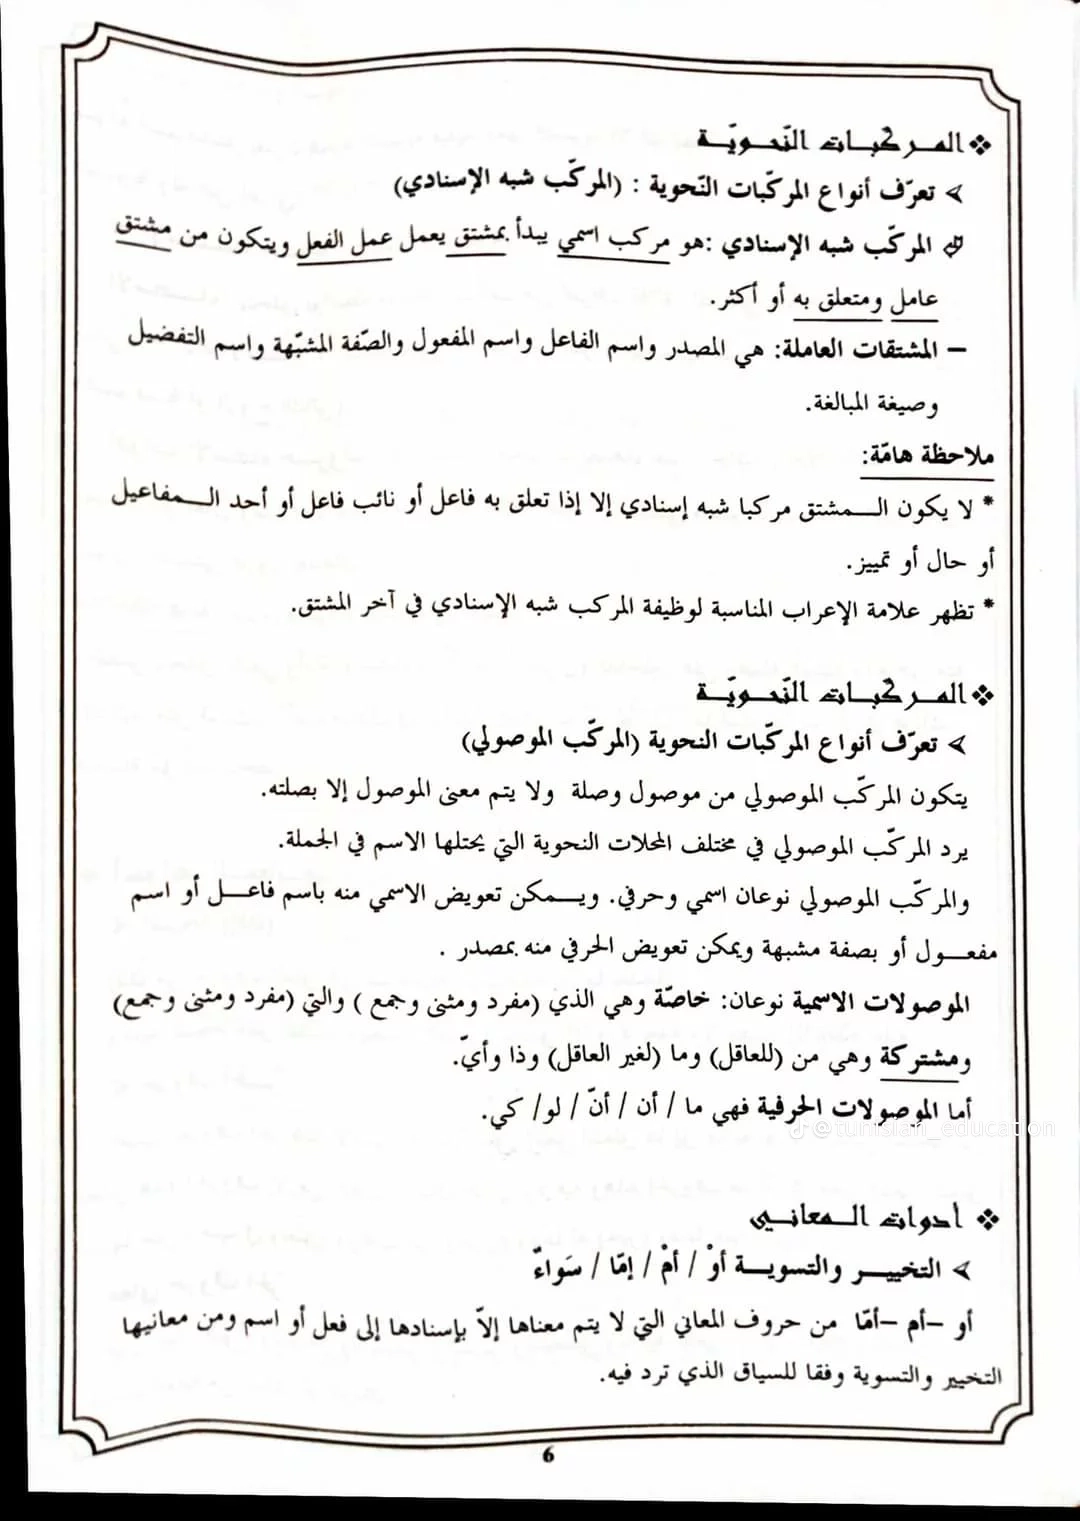 ❖ المركبات النّحويّة
➢ تعرّف أنواع المركّبات النّحوية : (المركّب شبه الإسنادي)
المركّب شبه الإسنادي :هو مركب اسمي يبدأ بمشتق يعمل عمل الفعل ويتكون من مشتق
عامل ومتعلق به أو أكثر.
– المشتقات العاملة: هي المصدر واسم الفاعل واسم المفعول والصّفة المشبّهة واسم التفضيل
وصيغة المبالغة.
ملاحظة هامّة:
* لا يكون المشتق مركبا شبه إسنادي إلا إذا تعلق به فاعل أو نائب فاعل أو أحد المفاعيل
أو حال أو تمييز.
* تظهر علامة الإعراب المناسبة لوظيفة المركب شبه الإسنادي في آخر المشتق.
❖ المركبات النّحويّة
➢ تعرّف أنواع المركّبات النحوية (المركّب الموصولي)
يتكون المركّب الموصولي من موصول وصلة ولا يتم معنى الموصول إلا بصلته.
يرد المركّب الموصولي في مختلف المحلات النحوية التي يحتلها الاسم في الجملة.
والمركّب الموصولي نوعان اسمي وحرفي. ويمكن تعويض الاسمي منه باسم فاعل أو اسم
مفعول أو بصفة مشبهة ويمكن تعويض الحرفي منه بمصدر .
الموصولات الاسمية نوعان: خاصّة وهي الذي (مفرد ومثنى وجمع ) والتي (مفرد ومثنى وجمع)
ومشتركة وهي من (للعاقل) وما (لغير العاقل) وذا وأيّ.
أما الموصولات الحرفية فهي ما / أن / أنّ / لو/ كي.
@tunisian_education
❖ أدوات المعاني
➢ التخيير والتسوية أوْ / أمْ / إمّا / سَواءٌ
أو –أم –أمّا من حروف المعاني التي لا يتم معناها إلاّ بإسنادها إلى فعل أو اسم ومن معانيها
التخيير والتسوية وفقا للسياق الذي ترد فيه.
6